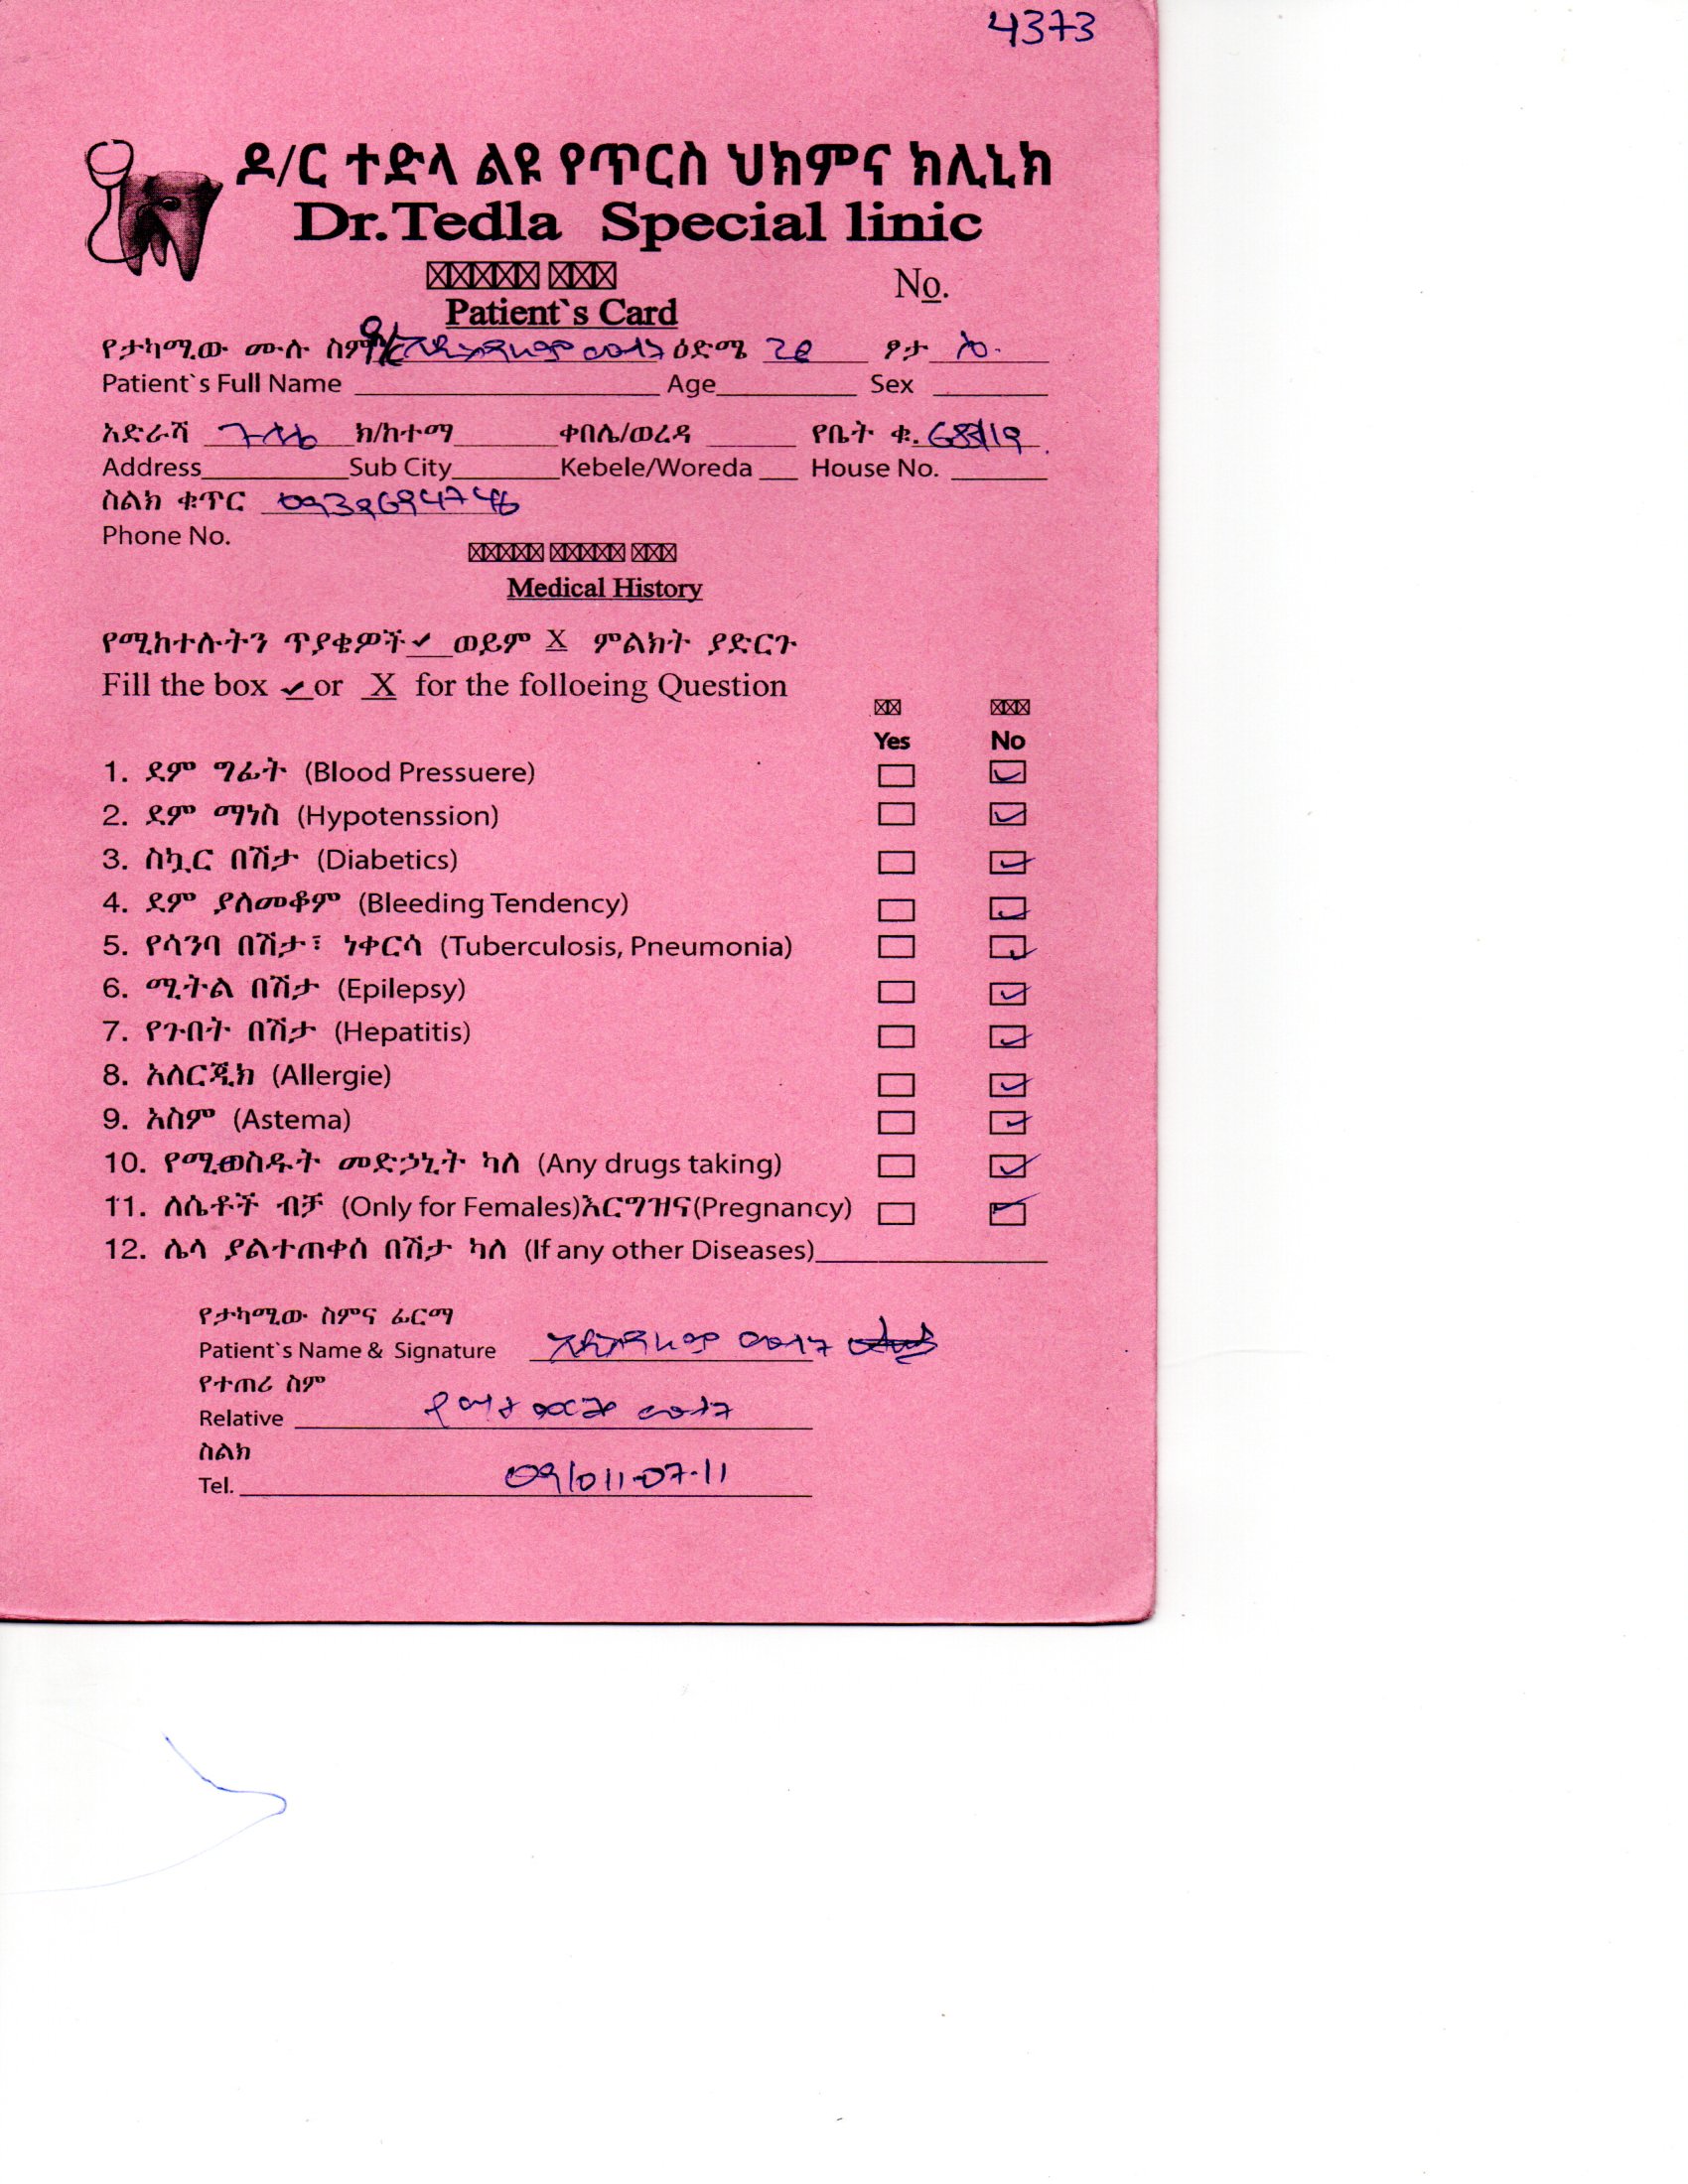 4373
ዶ/ር ተድላ ልዩ የጥርስ ህክምና ክሊኒክ
Dr.Tedla Special linic
No.
Patient`s Card
የታካሚው ሙሉ ስም ዕድሜ ፆታ
Patient`s Full Name Age Sex
አድራሻ ክ/ከተማ ቀበሌ/ወረዳ የቤት ቁ.
Address Sub City Kebele/Woreda House No.
ስልክ ቁጥር
Phone No.
Medical History
የሚከተሉትን ጥያቄዎች ✓ ወይም X ምልክት ያድርጉ
Fill the box ✓ or X for the folloeing Question
Yes No
1. ደም ግፊት (Blood Pressuere)
2. ደም ማነስ (Hypotenssion)
3. ስኳር በሽታ (Diabetics)
4. ደም ያለመቆም (Bleeding Tendency)
5. የሳንባ በሽታ፣ ነቀርሳ (Tuberculosis, Pneumonia)
6. ሚትል በሽታ (Epilepsy)
7. የጉበት በሽታ (Hepatitis)
8. አለርጂክ (Allergie)
9. አስም (Astema)
10. የሚወስዱት መድኃኒት ካለ (Any drugs taking)
11. ለሴቶች ብቻ (Only for Females)እርግዝና(Pregnancy)
12. ሌላ ያልተጠቀሰ በሽታ ካለ (If any other Diseases)
የታካሚው ስምና ፊርማ
Patient`s Name & Signature
የተጠሪ ስም
Relative
ስልክ
Tel. 09/011-07-11